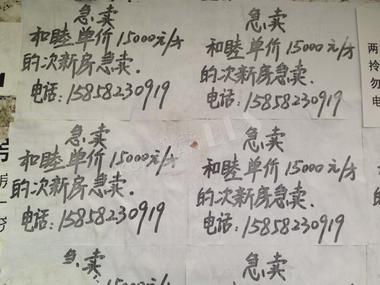 急卖
和睦单价15000元/方
的次新房急卖.
电话:15858230919
急卖
和睦单价15000元/方
的次新房急卖.
电话:15858230919
急卖
和睦单价15000元/方
的次新房急卖.
电话:15858230919
急卖
和睦单价15000元/方
的次新房急卖.
电话:15858230919
急卖
急卖
两
拎
勿
电